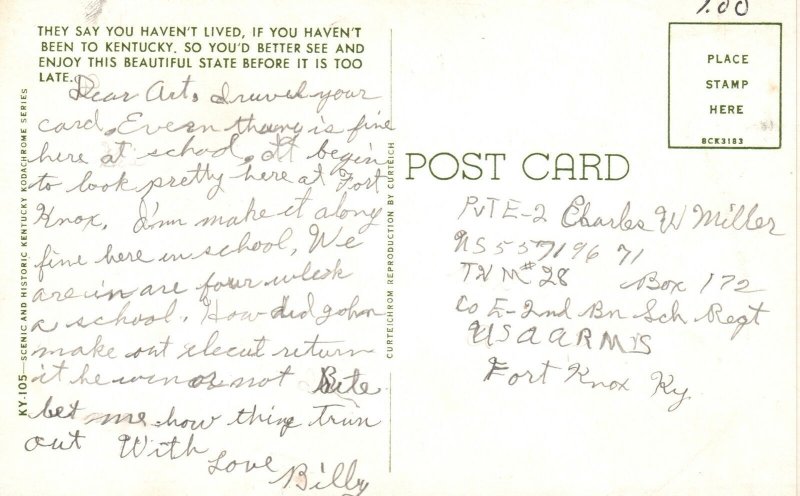 1.00
THEY SAY YOU HAVEN'T LIVED, IF YOU HAVEN'T
BEEN TO KENTUCKY. SO YOU'D BETTER SEE AND
ENJOY THIS BEAUTIFUL STATE BEFORE IT IS TOO
LATE.
Dear Art, your
card. Everen thaing is fine
here at school. It begin
to look pretty here at Fort
Knox. I'mn make it along
fine here in school, We
are in are four
a school. How did John
make out elecut return
it he win or not Brite
let me how thing trun
out With
Love
Billy
KY-105—SCENIC AND HISTORIC KENTUCKY KODACHROME SERIES
CURTEICHROM REPRODUCTION BY CURTEICH
POST CARD
PLACE
STAMP
HERE
BCK3183
PvT E-2 Charles W Miller
NS 55719671
#28 Box 172
Co E-2nd Bn Sch Regt
USAARMS
Fort Knox Ky.